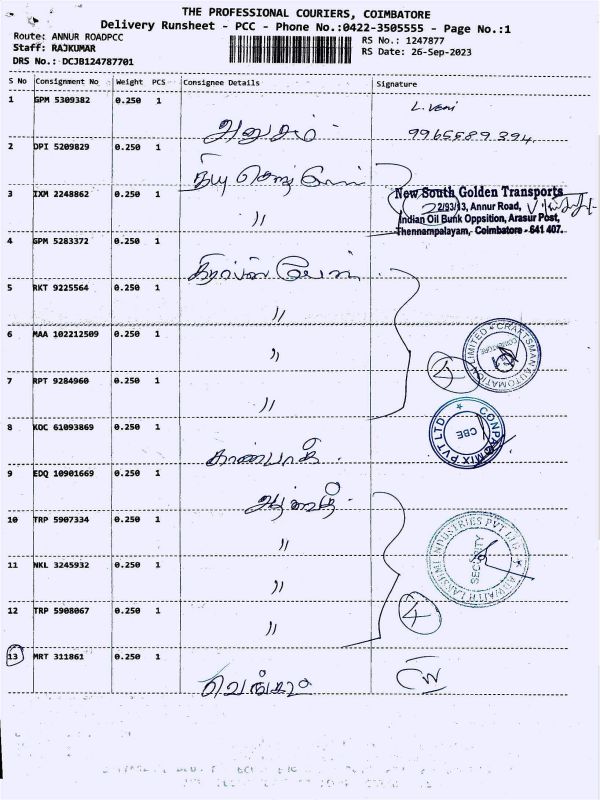 THE PROFESSIONAL COURIERS, COIMBATORE
Delivery Runsheet - PCC - Phone No.:0422-3505555 - Page No.:1
Route: ANNUR ROADPCC
RS No.: 1247877
Staff: RAJKUMAR
RS Date: 26-Sep-2023
DRS No.: DCJB124787701
S No Consignment No Weight PCS Consignee Details Signature
1 GPM 5309382 0.250 1 L. Veni
9965689394
2 DPI 5209829 0.250 1
3 IXM 2248862 0.250 1 〃
New South Golden Transports
2/93/13, Annur Road,
Indian Oil Bunk Oppsition, Arasur Post,
Thennampalayam, Coimbatore - 641 407.
4 GPM 5283372 0.250 1
5 RKT 9225564 0.250 1 〃
6 MAA 102212509 0.250 1 〃
CRAFTSMAN AUTOMATION LIMITED
COIMBATORE
4
7 RPT 9284960 0.250 1 〃
8 KOC 61093869 0.250 1
CONPROMIX PVT LTD
CBE
9 EDQ 10901669 0.250 1
10 TRP 5907334 0.250 1 〃
ADWAITH LAKSHMI INDUSTRIES PVT LTD
SECURITY
11 NKL 3245932 0.250 1 〃
12 TRP 5908067 0.250 1 〃
4
13 MRT 311861 0.250 1